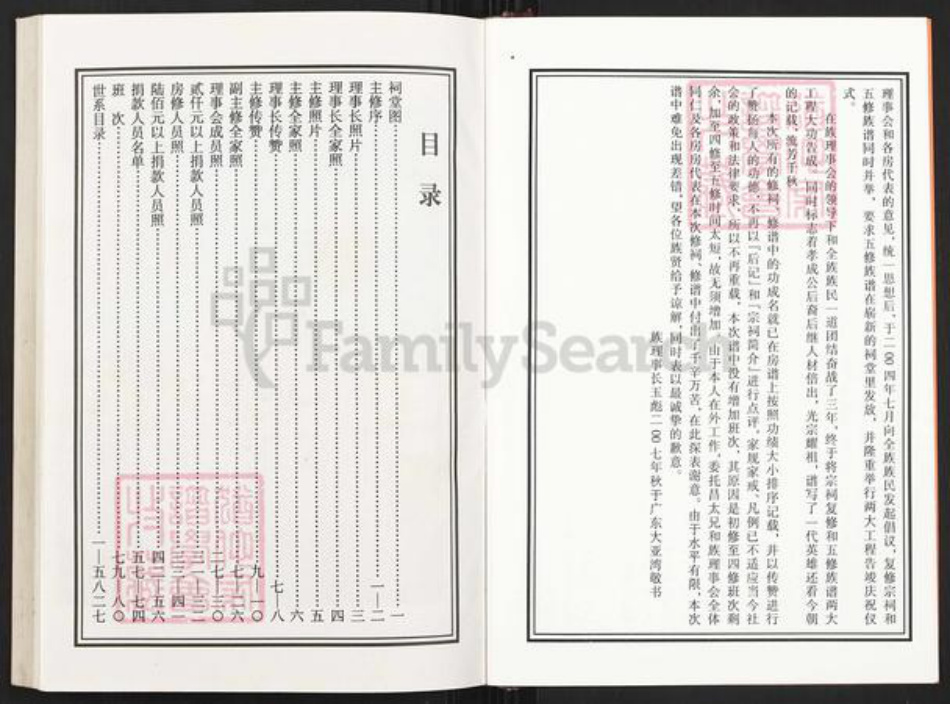 理事会和各房代表的意见，统一思想后，于二00四年七月向全族族民发起倡议，复修宗祠和
五修族谱同时并举，要求五修族谱在崭新的祠堂里发放，并隆重举行两大工程告竣庆祝仪
式。
在族理事会的领导下和全族族民一道团结奋战了三年，终于将宗祠复修和五修族谱两大
工程大功告成。同时标志着孝成公后裔后继人材倍出，光宗耀祖，谱写了一代英雄还看今朝
的记载，流芳千秋
本次所有的修祠、修谱中的功成名就已在房谱上按照功绩大小排序记载，并以传赞进行
了赞扬每人的功德，不再以『后记』和『宗祠简介』进行点评。家规家戒、凡例已不适应当今社
会的政策和法律要求，所以不再重载，本次谱中没有增加班次，其原因是初修至四修班次剩
余，加至四修至五修时间太短，故无须增加。由于本人在外工作，委托昌太兄和族理事会全体
同仁及各房房代表在本次修祠、修谱中付出了千辛万苦，在此深表谢意。由于水平有限，本次
谱中难免出现差错，望各位族贤给予谅解，同时表以最诚挚的歉意。
族理事长玉彪二00七年秋于广东大亚湾敬书
目录
祠堂图 一
主修序 一—二
理事长照片 三
理事长全家照 四
主修照片 五
主修全家照 六
理事长传赞 七—八
主修传赞 九—一〇
副主修全家照 七—二六
理事会成员照 二七—三〇
贰仟元以上捐款人员照 三一—三二
房修人员照 三三—四一
陆佰元以上捐款人员照 四二—五六
捐款人员名单 五七—七四
班次 七九—八〇
世系目录 一—五八二七
FamilySearch